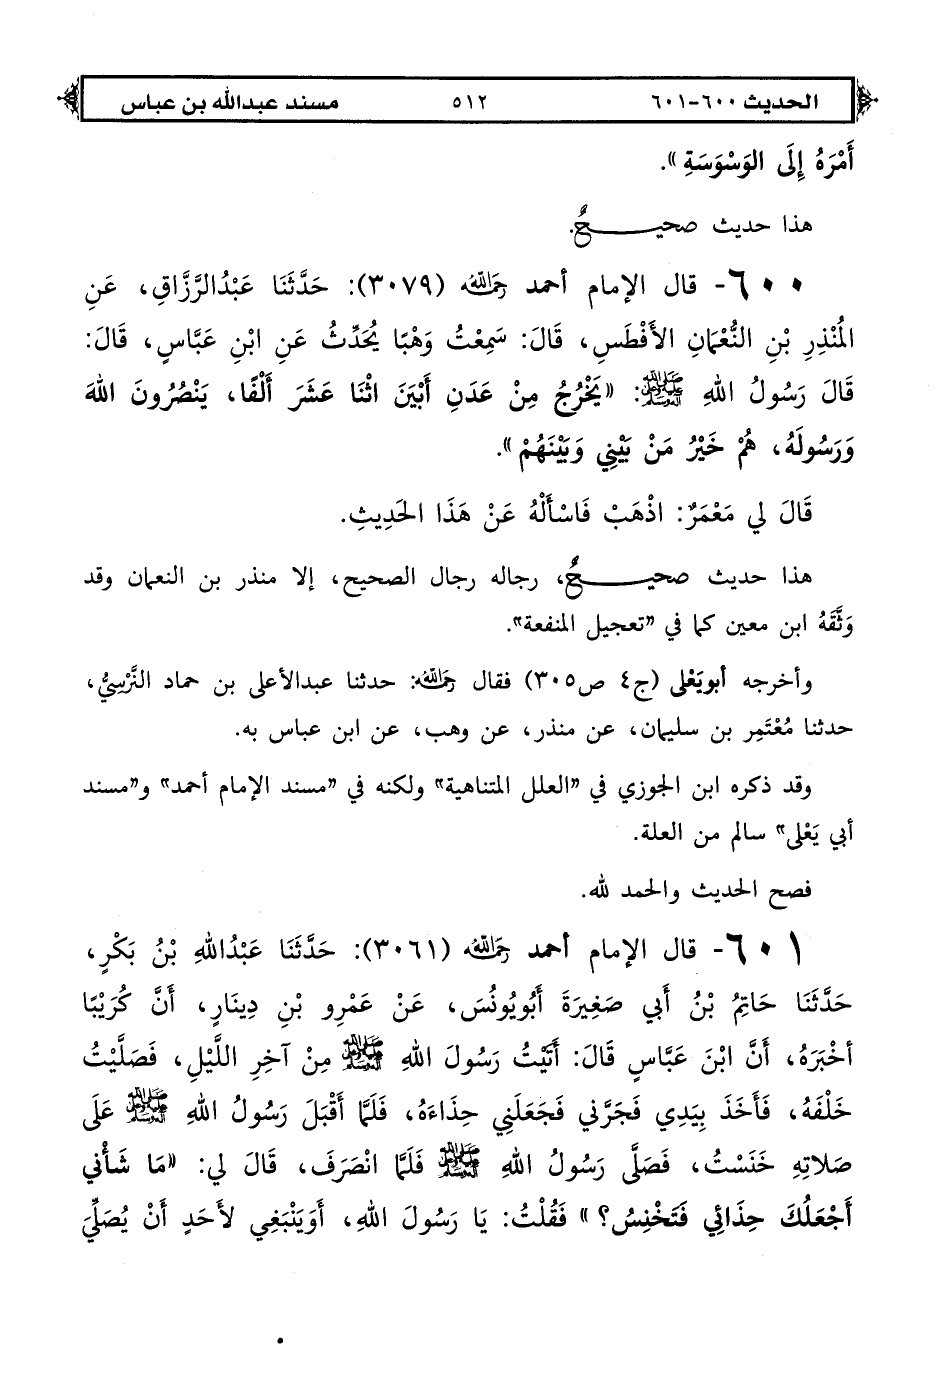 الحديث ٦٠٠-٦٠١ ٥١٢ مسند عبدالله بن عباس
أَمْرَهُ إِلَى الوَسْوَسَةِ».
هذا حديث صحيـــــحٌ.
٦٠٠- قال الإمام أحمد رَحِمَهُ اللهُ (٣٠٧٩): حَدَّثَنَا عَبْدُالرَّزَّاقِ، عَنِ
المُنْذِرِ بْنِ النُّعْمَانِ الأَفْطَسِ، قَالَ: سَمِعْتُ وَهْبًا يُحَدِّثُ عَنِ ابْنِ عَبَّاسٍ، قَالَ:
قَالَ رَسُولُ اللهِ ﷺ: «يَخْرُجُ مِنْ عَدَنِ أَبْيَنَ اثْنَا عَشَرَ أَلْفًا، يَنْصُرُونَ اللهَ
وَرَسُولَهُ، هُمْ خَيْرُ مَنْ بَيْنِي وَبَيْنَهُمْ».
قَالَ لي مَعْمَرٌ: اذْهَبْ فَاسْأَلْهُ عَنْ هَذَا الحَدِيثِ.
هذا حديث صحيـــــحٌ، رجاله رجال الصحيح، إلا منذر بن النعمان وقد
وَثَّقَهُ ابن معين كما في "تعجيل المنفعة".
وأخرجه أبويَعْلى (ج٤ ص٣٠٥) فقال رَحِمَهُ اللهُ: حدثنا عبدالأعلى بن حماد النَّرْسِيُّ،
حدثنا مُعْتَمِر بن سليمان، عن منذر، عن وهب، عن ابن عباس به.
وقد ذكره ابن الجوزي في "العلل المتناهية" ولكنه في "مسند الإمام أحمد" و"مسند
أبي يَعْلى" سالم من العلة.
فصح الحديث والحمد لله.
٦٠١- قال الإمام أحمد رَحِمَهُ اللهُ (٣٠٦١): حَدَّثَنَا عَبْدُاللهِ بْنُ بَكْرٍ،
حَدَّثَنَا حَاتِمُ بْنُ أَبي صَغِيرَةَ أَبُويُونُسَ، عَنْ عَمْرِو بْنِ دِينَارٍ، أَنَّ كُرَيْبًا
أخْبَرَهُ، أَنَّ ابْنَ عَبَّاسٍ قَالَ: أَتَيْتُ رَسُولَ اللهِ ﷺ مِنْ آخِرِ اللَّيْلِ، فَصَلَّيْتُ
خَلْفَهُ، فَأَخَذَ بِيَدِي فَجَرَّني فَجَعَلَنِي حِذَاءَهُ، فَلَمَّا أَقْبَلَ رَسُولُ اللهِ ﷺ عَلَى
صَلاتِهِ خَنَسْتُ، فَصَلَّى رَسُولُ اللهِ ﷺ فَلَمَّا انْصَرَفَ، قَالَ لي: «مَا شَأْني
أَجْعَلُكَ حِذَائِي فَتَخْنِسُ؟» فَقُلْتُ: يَا رَسُولَ اللهِ، أَوَيَنْبَغِي لأَحَدٍ أَنْ يُصَلِّيَ